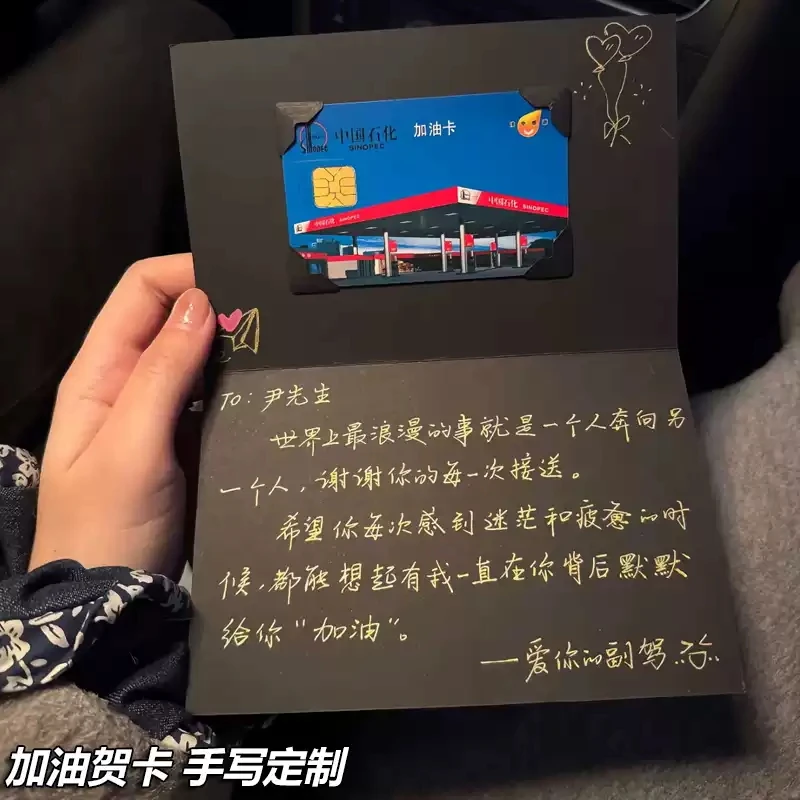 中国石化 加油卡
SINOPEC
SINOPEC
中国石化 SINOPEC
中国石化 SINOPEC
To: 尹先生
世界上最浪漫的事就是一个人奔向另
一个人，谢谢你的每一次接送。
希望你每次感到迷茫和疲惫的时
候，都能想起有我一直在你背后默默
给你“加油”。
——爱你的副驾
加油贺卡 手写定制